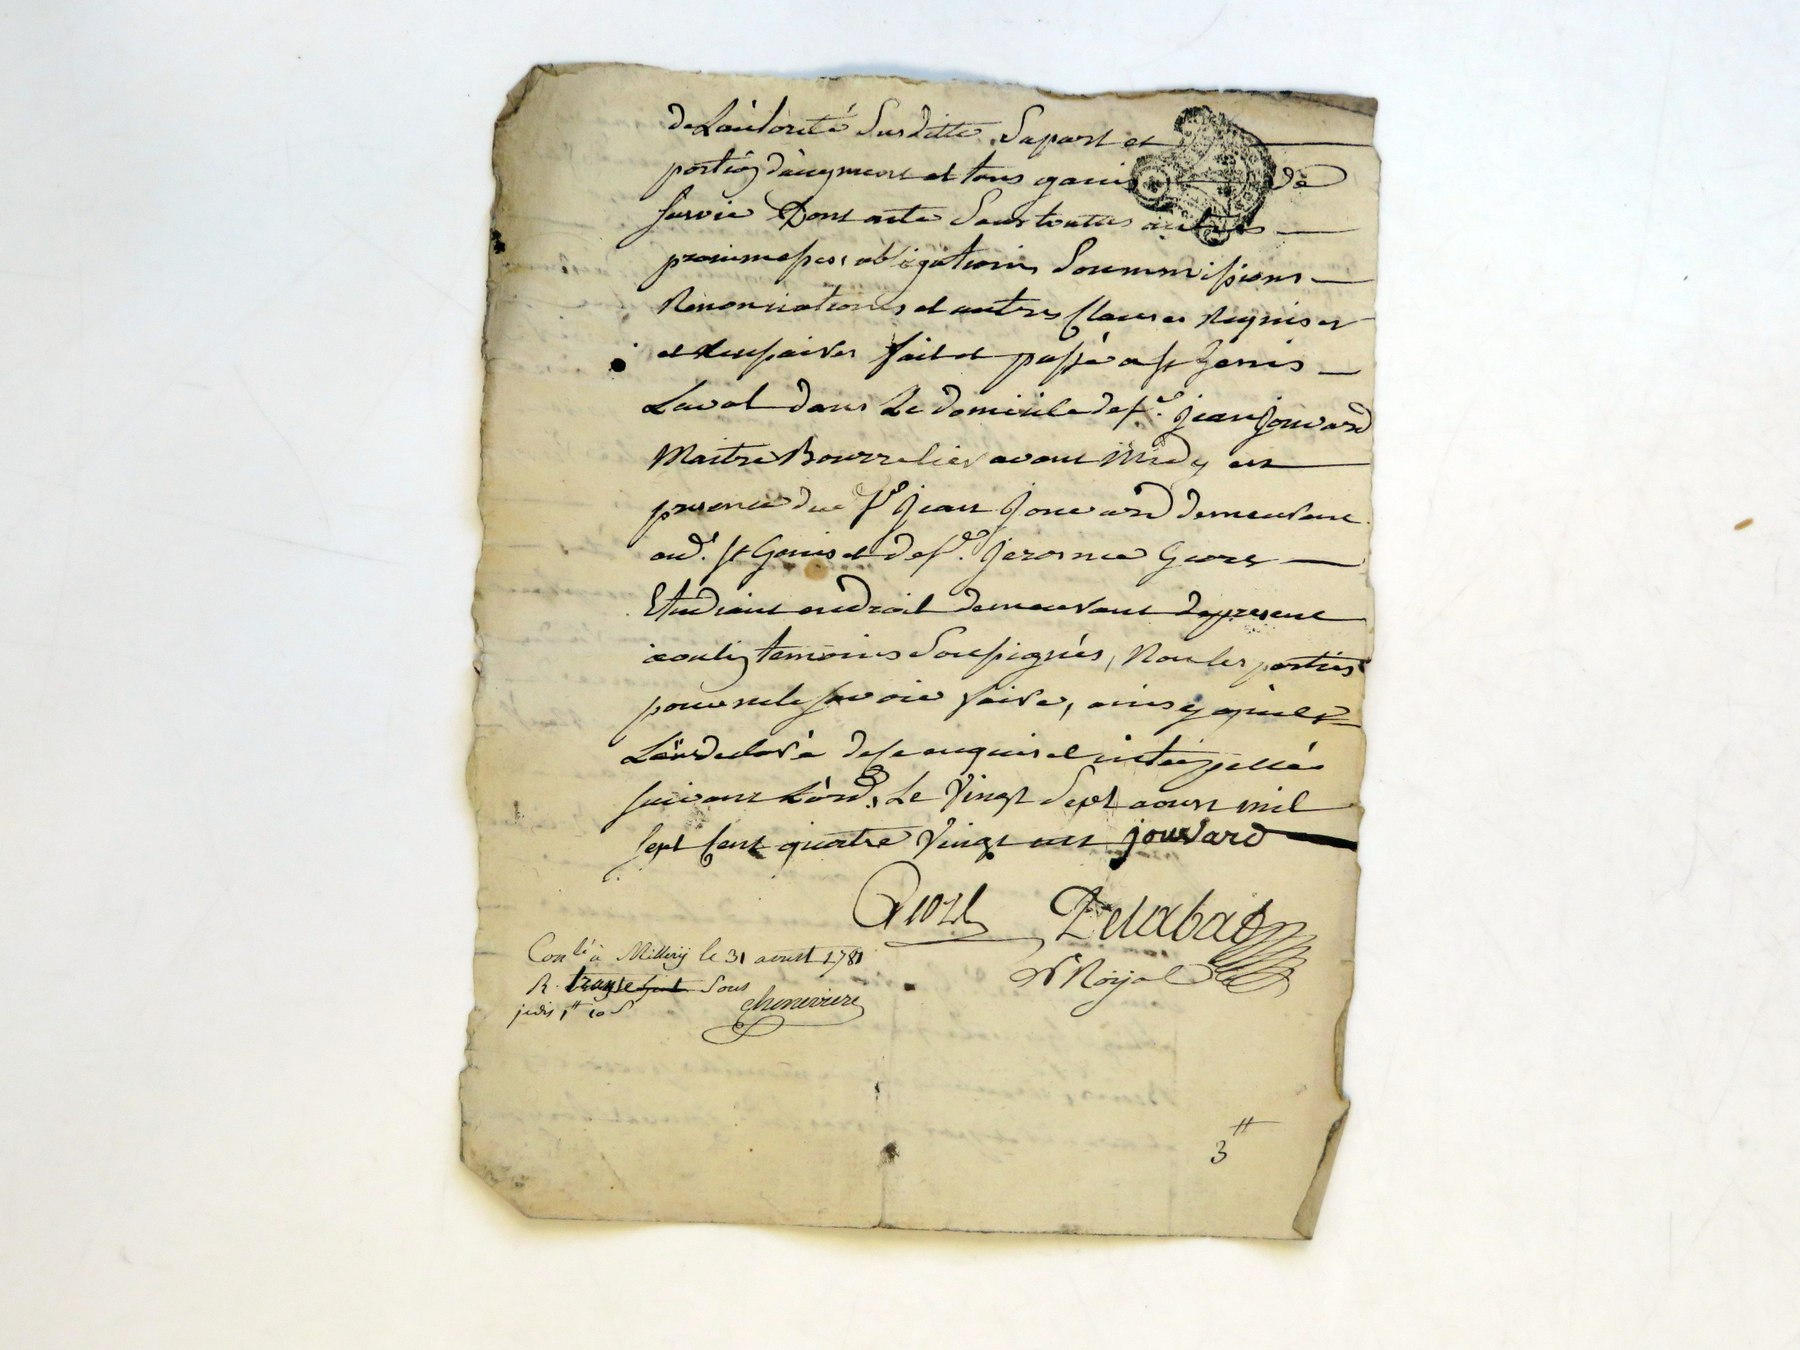 de Laûtorité Susditte, Sapart et
portion d'augment et tous gains de
survie Dont acte Sous toutes autres
promesses, obligations Soummissions
Renonciations et autres Clauses Requises
et necessaires fait et passé a st Genis
Laval dans Le domicile de sr. jean jouvard
Maitre Bourrelier avant Midy en
presence du sr jean jouvard demeurant
aud. st Genis et de sr. jerosme Giore
Etudiant en droit demeurant depresent
temoins Soussignés, Non les parties
pour ne le savoir faire, ainsy qu'iles
L'ont declaré de ce enquis et interpellés
suivant L'ord. Le Vingt Sept aoust mil
sept Cent quatre Vingt un jouvard
Delabat
Conlé à Millery le 31 aoust 1781
nre Royal
R. sous
chenevriere
3 ₶